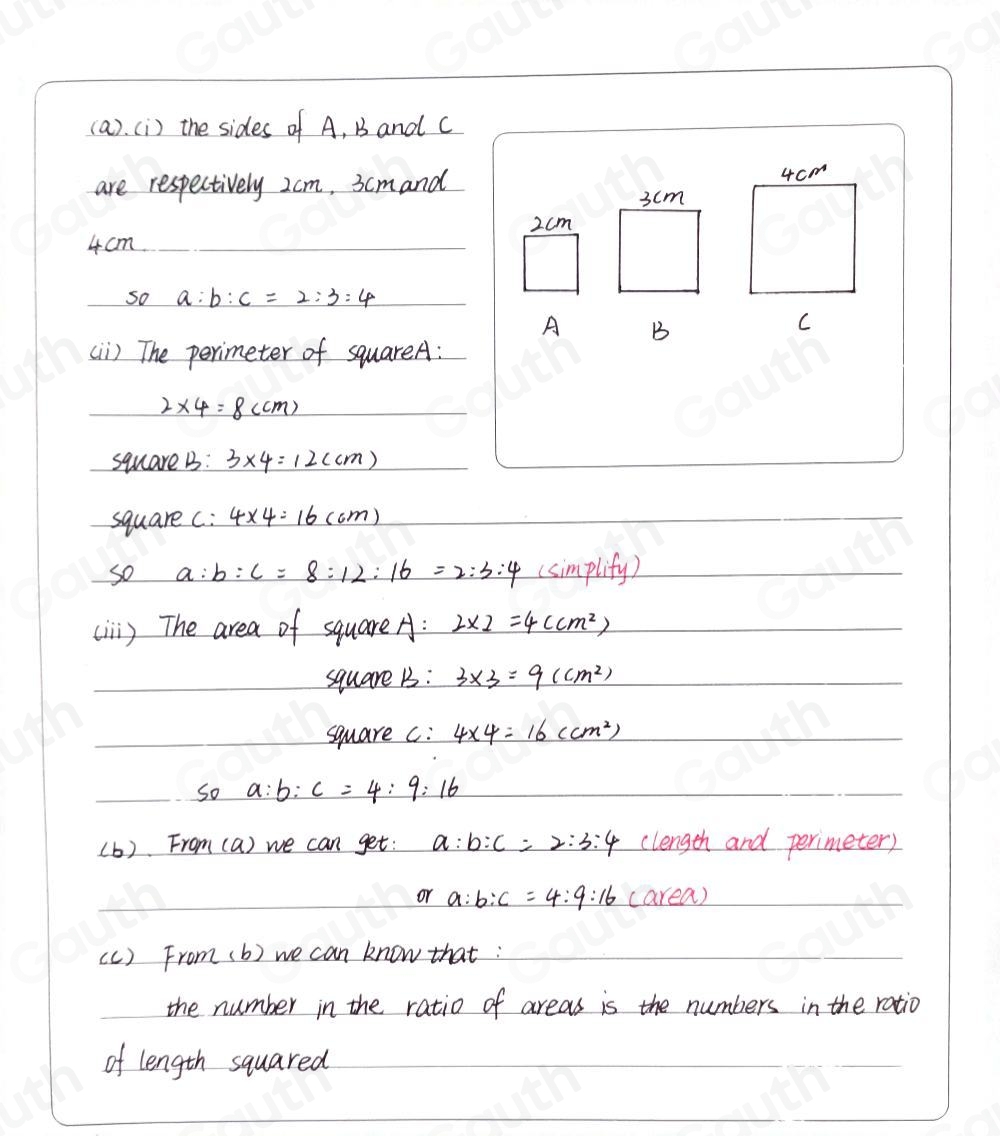 (a).(i) the sides of A, B and C
are respectively 2cm, 3cm and
4cm.
so a:b:c = 2:3:4
(ii) The perimeter of square A:
2×4=8(cm)
square B: 3×4=12(cm)
square C: 4×4=16(cm)
so a:b:c = 8:12:16 =2:3:4 (simplify)
(iii) The area of square A: 2×2 =4(cm²)
square B: 3×3=9(cm²)
square C: 4×4=16(cm²)
so a:b:c = 4:9:16
(b). From (a) we can get: a:b:c = 2:3:4 (length and perimeter)
or a:b:c = 4:9:16 (area)
(c) From (b) we can know that :
the number in the ratio of areas is the numbers in the ratio
of length squared
2cm 3cm 4cm
A B C
Gauth